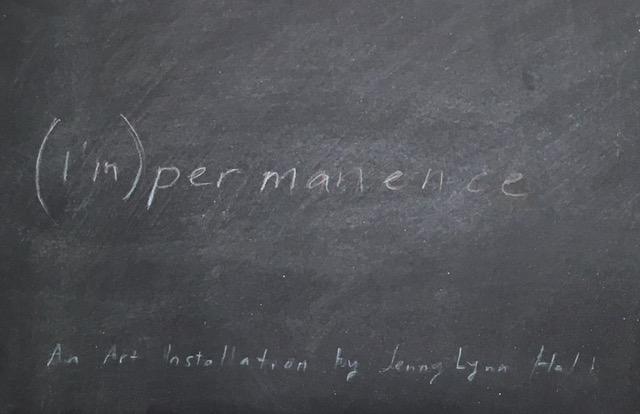 (I'm)permanence
An Art Installation by Jenny Lynn Hall